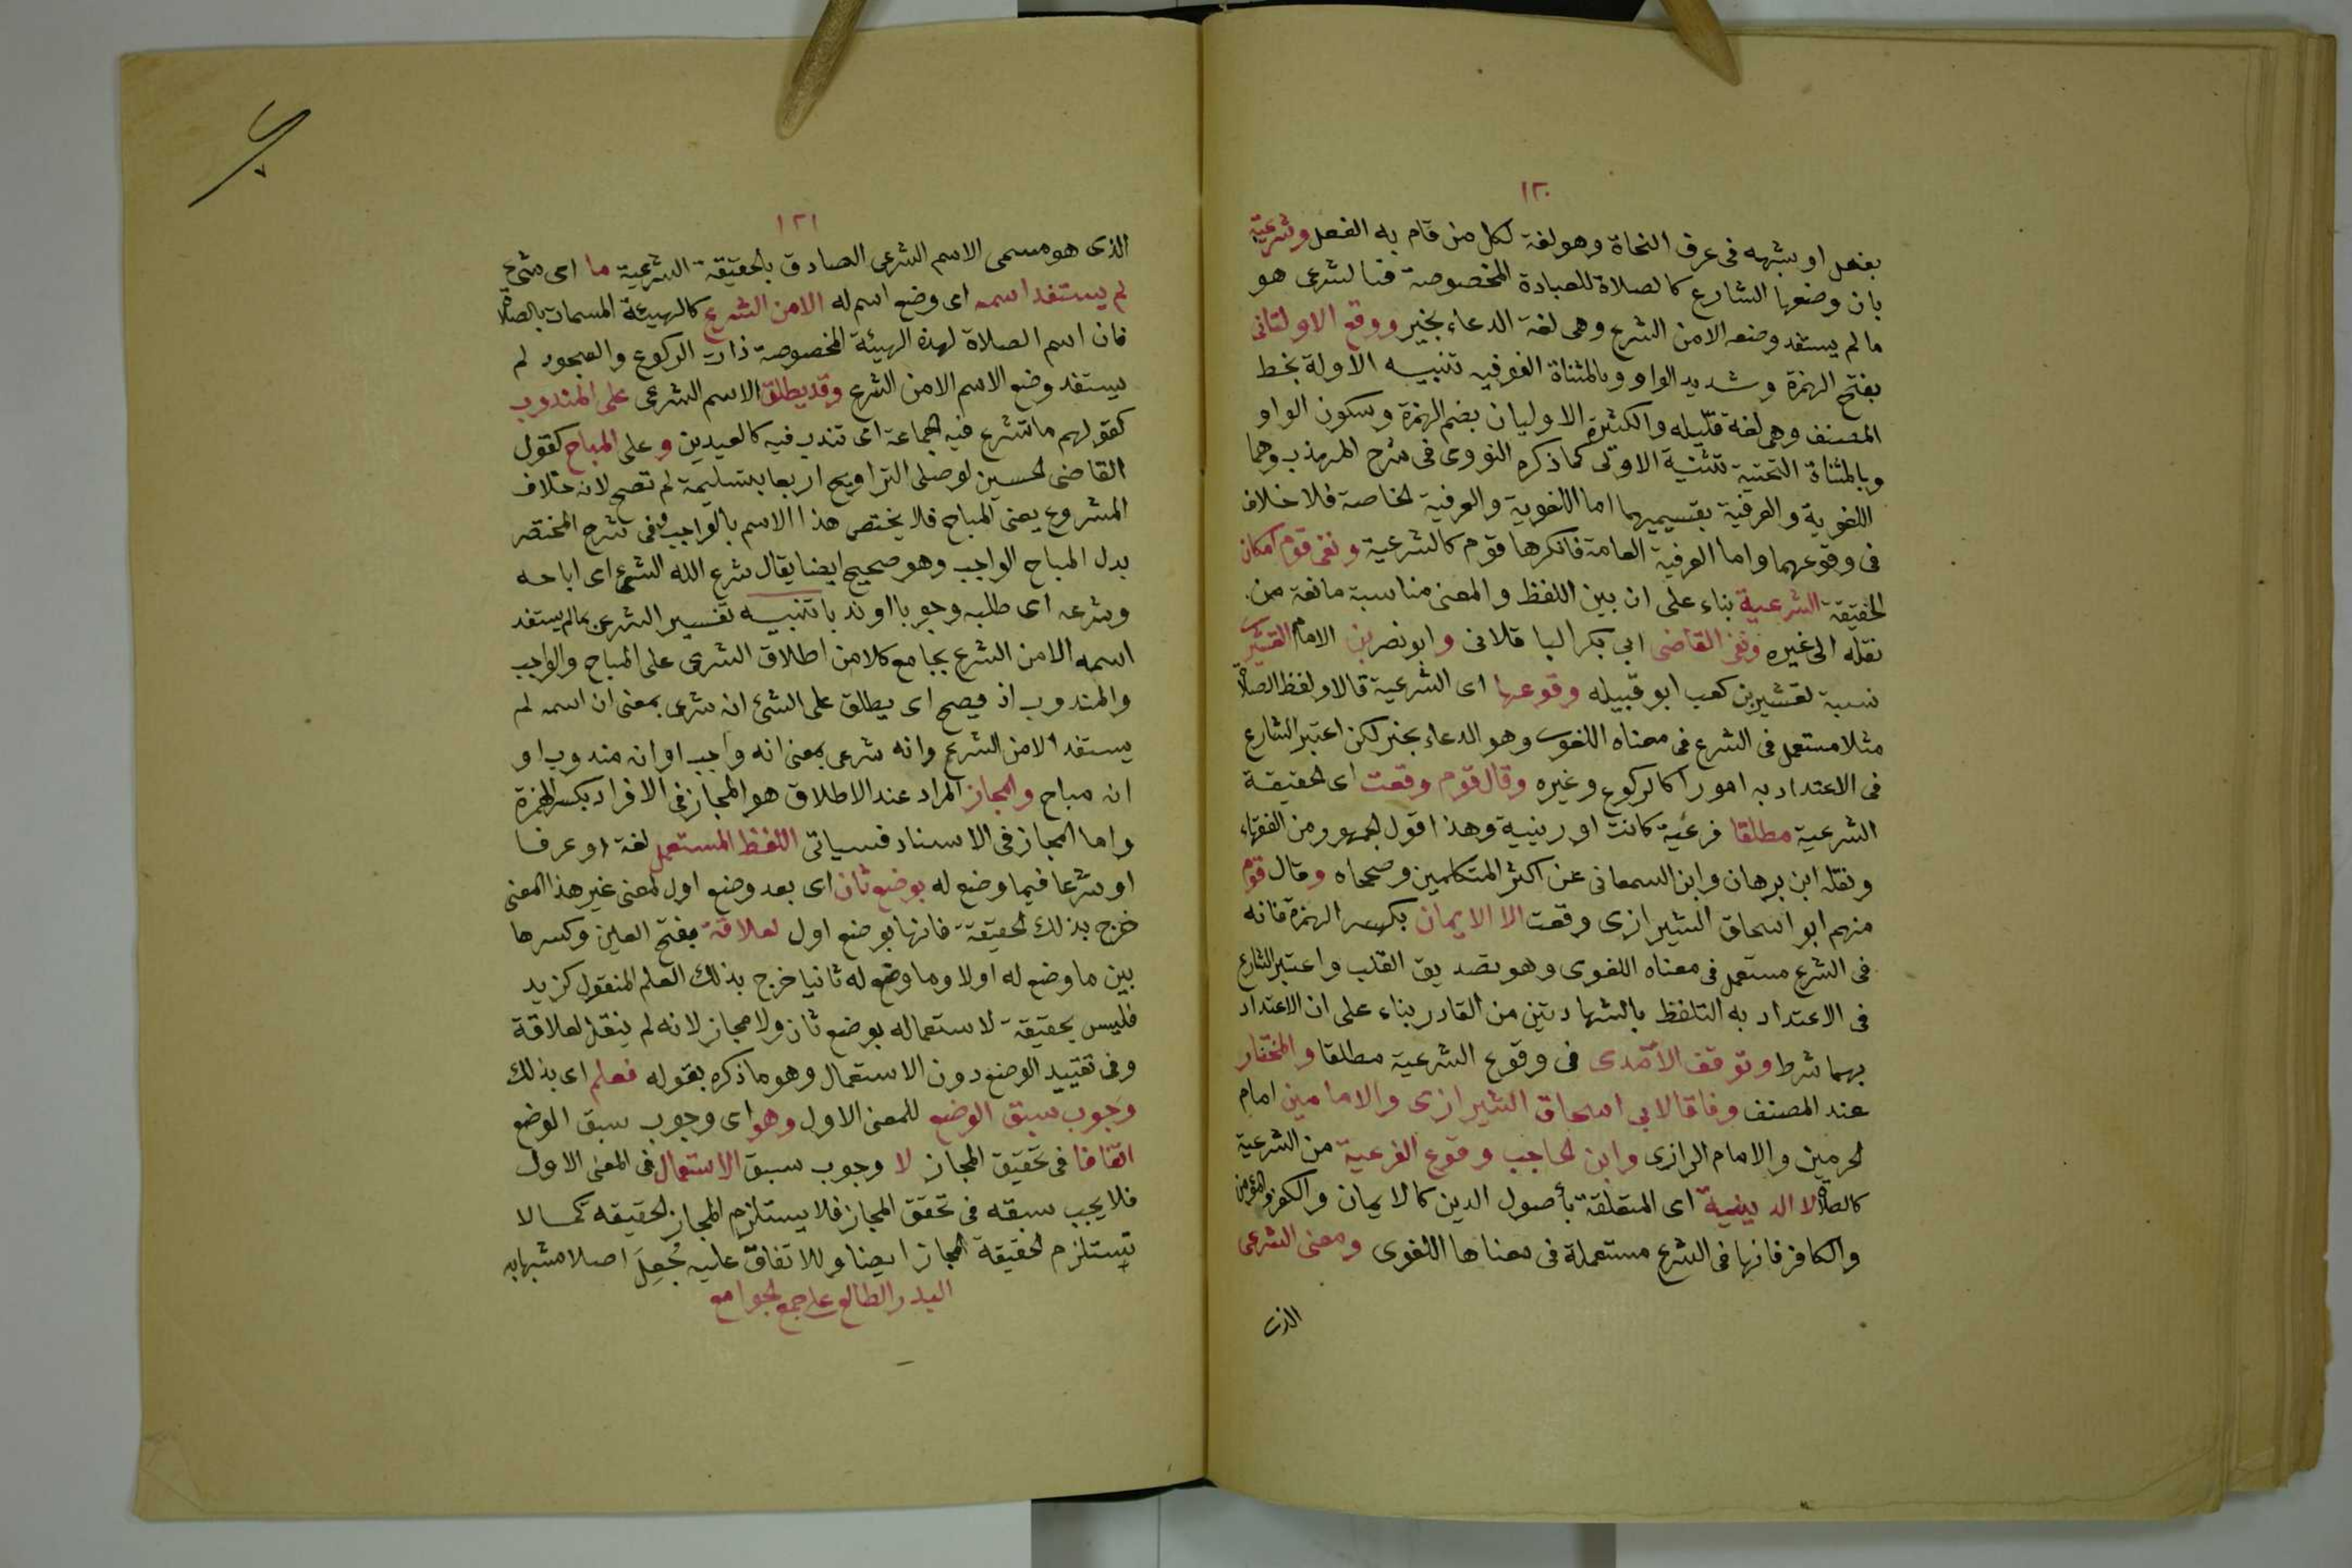 ١٢٠
بفعل او شبهه فى عرف النحاة وهو لغة لكل من قام به الفعل وشرعية
بان وضعها الشارع كالصلاة للعبادة المخصوصة فالشرعى هو
ما لم يستفد وضعه الا من الشرع وهى لغة الدعاء بخير ووقع الاولتانى
بفتح الهمزة وشديد الواو وبالمثناة الفوقيه تنبيه الاولة بخط
المصنف وهى لغة قليله والكثيرة الاوليان بضم الهمزة وسكون الواو
وبالمثناة التحتية تثنية الاولى كما ذكره النووى فى شرح المهذب وهما
اللغوية والعرفية بقسيميهما اما اللغوية والعرفية الخاصة فلا خلاف
فى وقوعهما واما العرفية العامة فانكرها قوم كالشرعية ونفى قوم امكان
الحقيقة الشرعية بناء على ان بين اللفظ والمعنى مناسبة مانعة من
نقله الى غيره ونفى القاضى ابى بكر الباقلانى وابو نصر بن الامام القشيرى
نسبة لقشير بن كعب ابو قبيله وقوعها اى الشرعية قالا ولفظ الصلاة
مثلا مستعمل فى الشرع فى معناه اللغوى وهو الدعاء بخير لكن اعتبر الشارع
فى الاعتداد به امورا كالركوع وغيره وقال قوم وقعت اى الحقيقة
الشرعية مطلقا فرعية كانت او دينية وهذا قول الجمهور من الفقهاء
ونقله ابن برهان وابن السمعانى عن اكثر المتكلمين وصححاه وقال قوم
منهم ابو اسحاق الشيرازى وقعت الا الايمان بكسر الهمزة فانه
فى الشرع مستعمل فى معناه اللغوى وهو تصديق القلب واعتبر الشارع
فى الاعتداد به التلفظ بالشهادتين من القادر بناء على ان الاعتداد
بهما شرط وتوقف الآمدى فى وقوع الشرعية مطلقا والمختار
عند المصنف وفاقا لابى اسحاق الشيرازى والامامين امام
الحرمين والامام الرازى وابن الحاجب وقوع الفرعية من الشرعية
كالصلاة لا الدينية اى المتعلقة بأصول الدين كالايمان والكفر والمؤمن
والكافر فانها فى الشرع مستعملة فى معناها اللغوى ومعنى الشرعى
الذى
١٢١
الذى هو مسمى الاسم الشرعى الصادق بالحقيقة الشرعية ما اى شىء
لم يستفد اسمه اى وضع اسم له الا من الشرع كالهيئة المسمات بالصلاة
فان اسم الصلاة لهذه الهيئة المخصوصة ذات الركوع والسجود لم
يستفد وضع الاسم الا من الشرع وقد يطلق الاسم الشرعى على المندوب
كقولهم ما تشرع فيه الجماعة اى تندب فيه كالعيدين وعلى المباح كقول
القاضى الحسين لو صلى التراويح اربعا بتسليمة لم تصح لانه خلاف
المشروع يعنى المباح فلا يختص هذا الاسم بالواجب وفى شرح المختصر
بدل المباح الواجب وهو صحيح ايضا يقال شرع الله الشىء اى اباحه
وشرعه اى طلبه وجوبا او ندبا تنبيه تفسير الشرعى بما لم يستفد
اسمه الا من الشرع يجامع كلا من اطلاق الشرعى على المباح والواجب
والمندوب اذ يصح اى يطلق على الشئ انه شرعى بمعنى ان اسمه لم
يستفد الا من الشرع وانه شرعى بمعنى انه واجب او انه مندوب او
انه مباح والمجاز المراد عند الاطلاق هو المجاز فى الافراد بكسر الهمزة
واما المجاز فى الاسناد فسياتى اللفظ المستعمل لغة او عرفا
او شرعا فيما وضع له بوضع ثان اى بعد وضع اول لمعنى غير هذا المعنى
خرج بذلك الحقيقة فانها بوضع اول لعلاقة بفتح العين وكسرها
بين ما وضع له اولا وما وضع له ثانيا خرج بذلك العلم المنقول كزيد
فليس بحقيقة لاستعماله بوضع ثان ولا مجاز لانه لم ينقل لعلاقة
وفى تقييد الوضع دون الاستعمال وهو ما ذكره بقوله فعلم اى بذلك
وجوب سبق الوضع للمعنى الاول وهو اى وجوب سبق الوضع
اتفاقا فى تحقيق المجاز لا وجوب سبق الاستعمال فى المعنى الاول
فلا يجب سبقه فى تحقق المجاز فلا يستلزم المجاز الحقيقه كما لا
تستلزم الحقيقة المجاز ايضا وللاتفاق عليه جُعِلَ اصلا مشبها به
البدر الطالع على جمع الجوامع